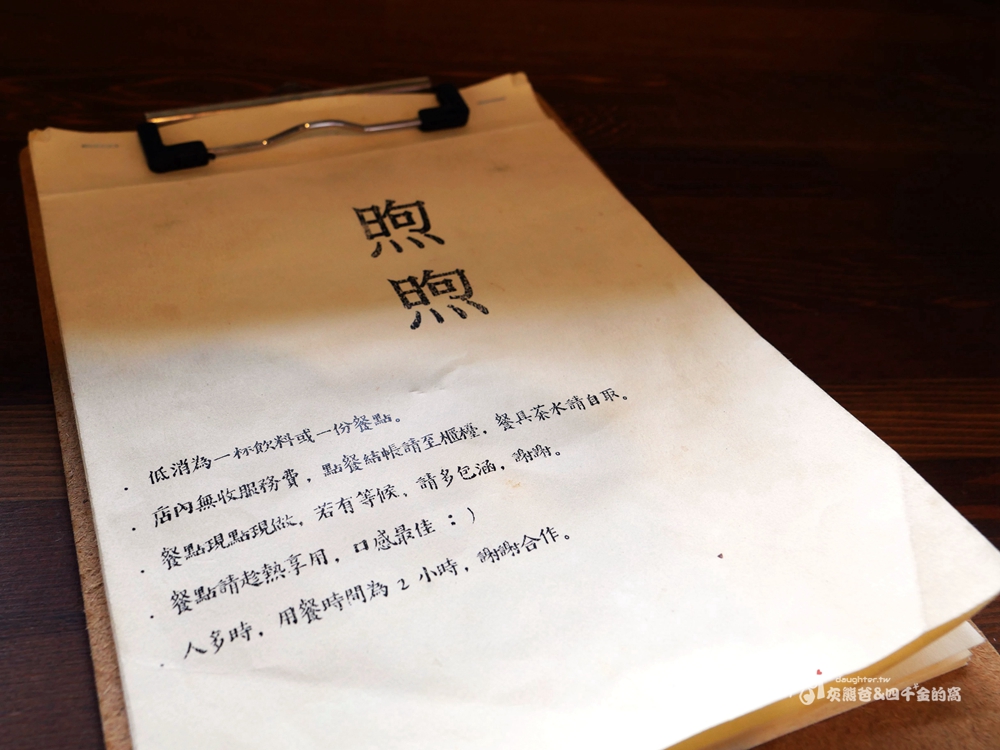 煦
煦
· 低消為一杯飲料或一份餐點。
· 店內無收服務費，點餐結帳請至櫃檯，餐具茶水請自取。
· 餐點現點現做，若有等候、請多包涵，謝謝。
· 餐點請趁熱享用，口感最佳：)
· 人多時，用餐時間為 2 小時，謝謝合作。
daughter.tw
灰熊爸&四千金的窩